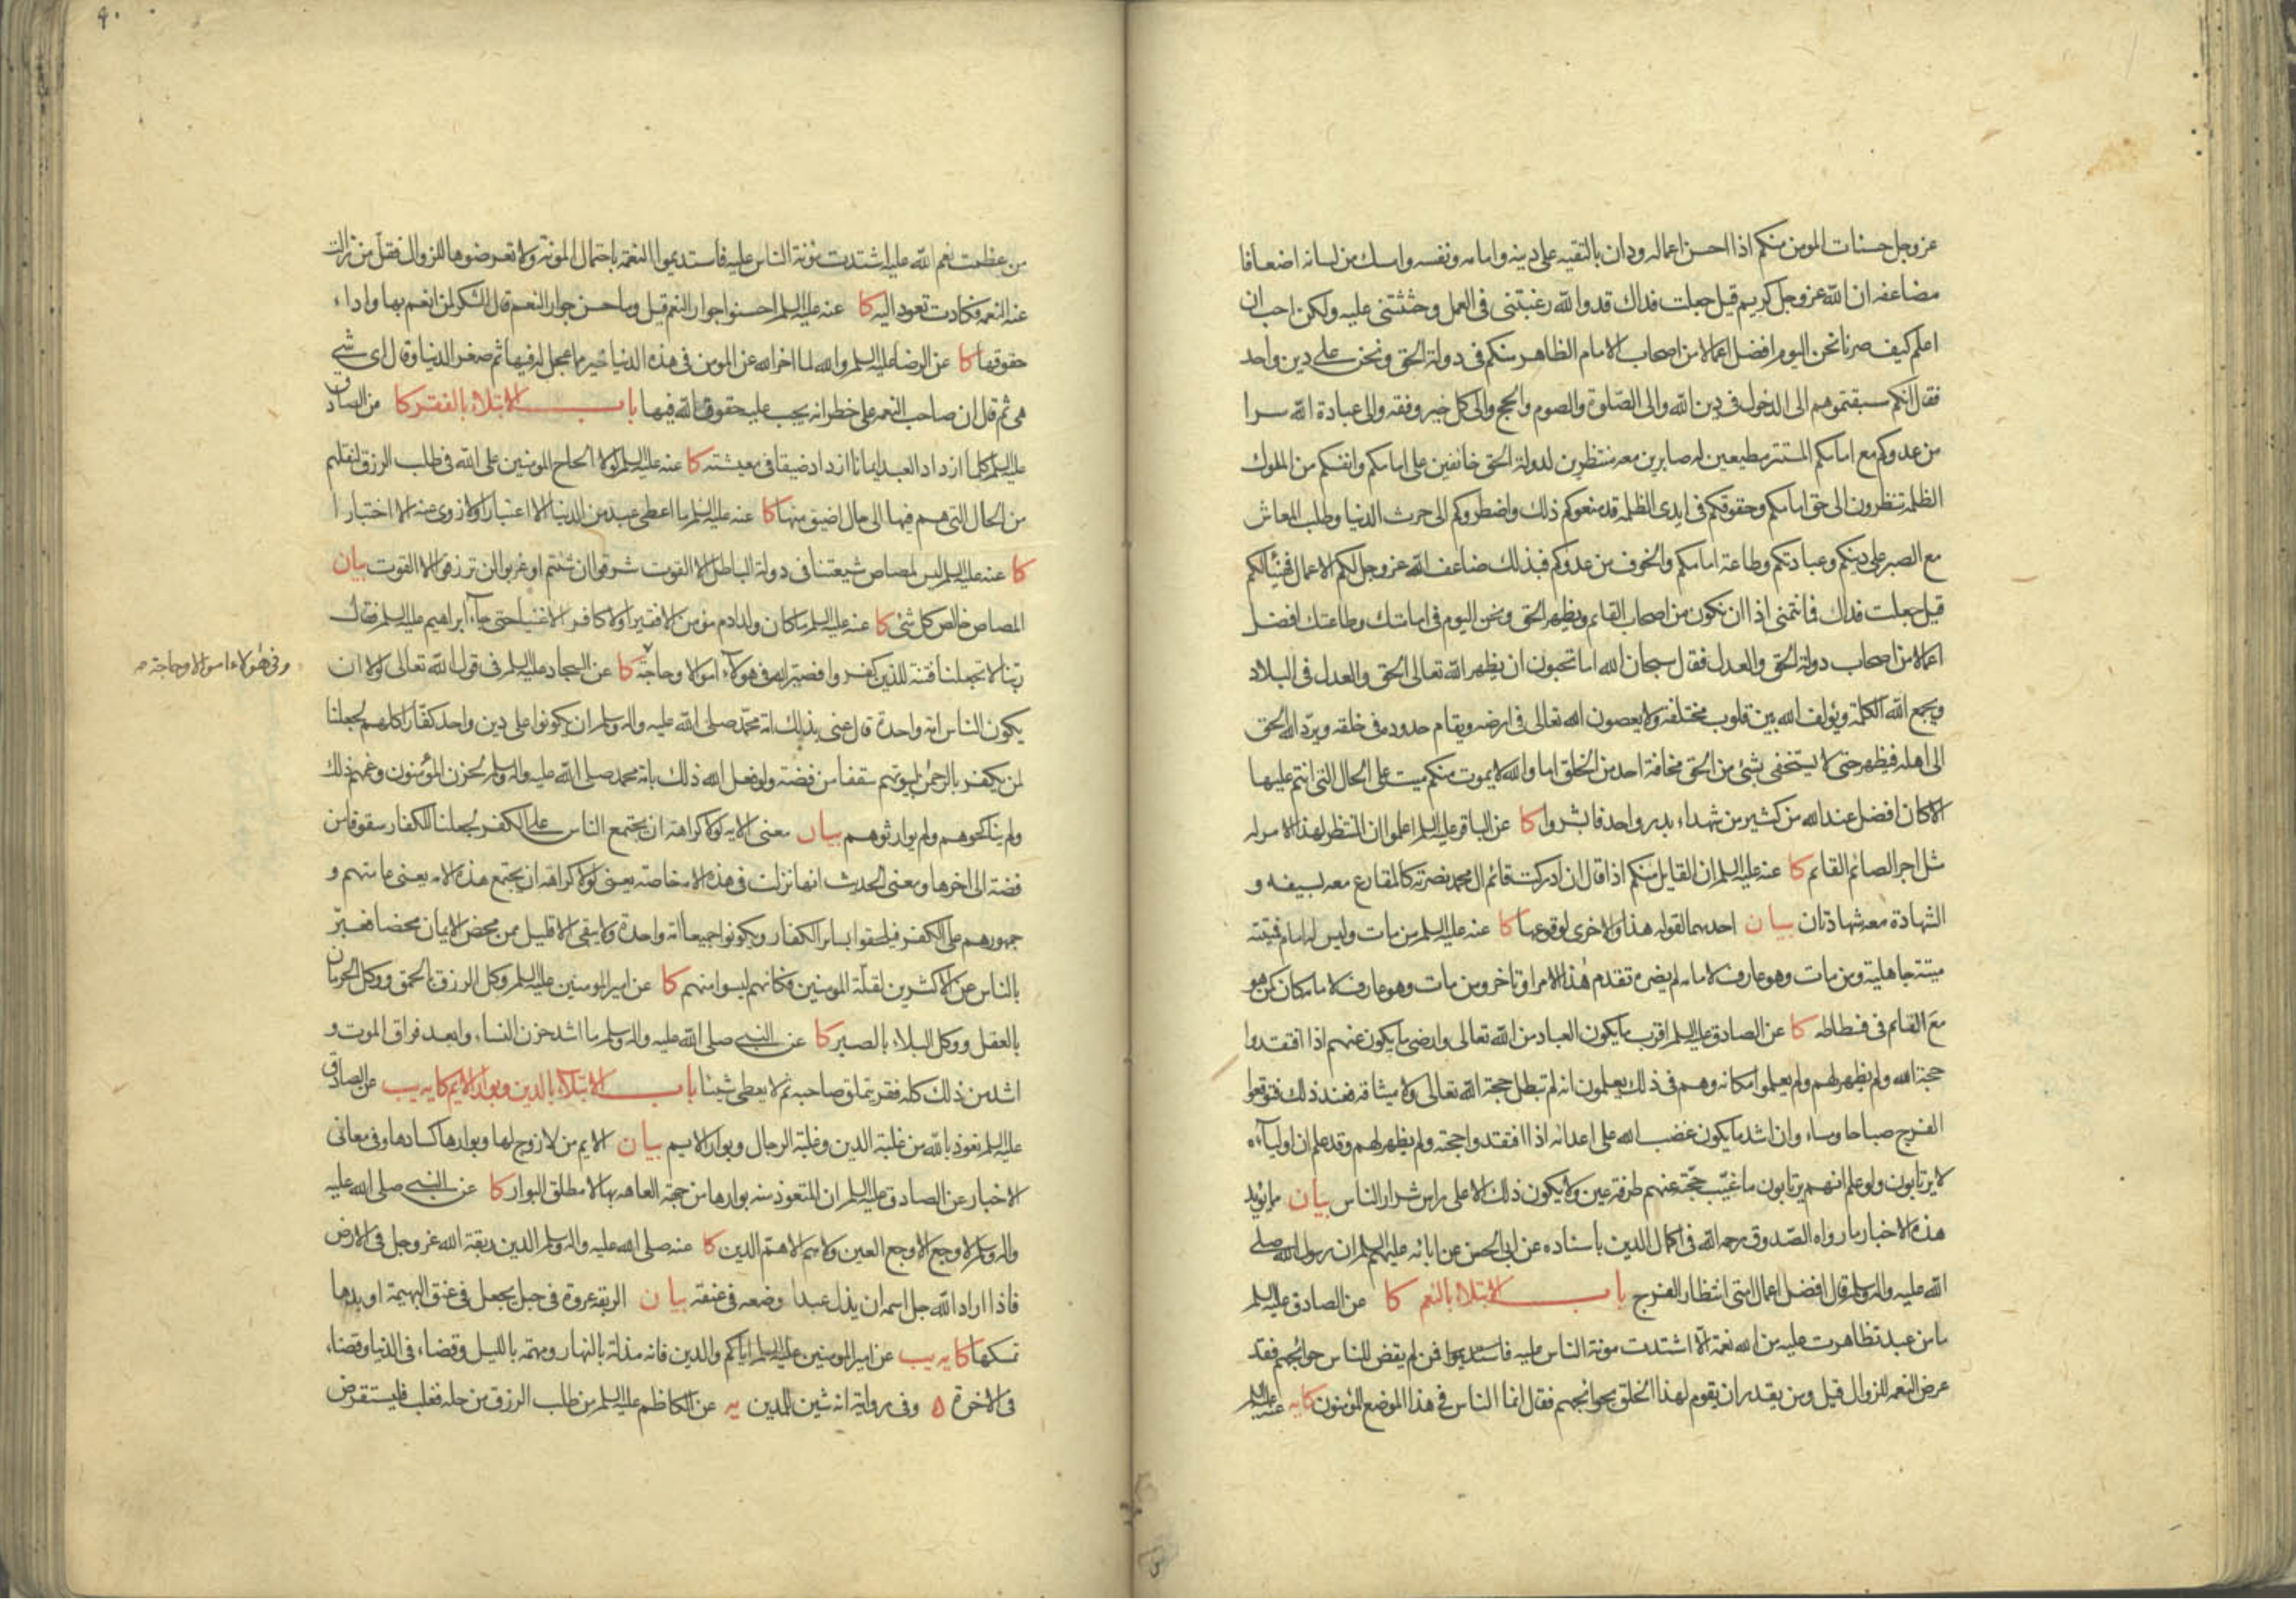 عز وجل حسنات المومن منكم اذا احسن اعماله ودان بالتقيه على دينه وامامه ونفسه وامسك من لسانه اضعافا
مضاعفه ان الله عز وجل كريم قيل جعلت فداك قد والله رغبتنى فى العمل وحثثتنى عليه ولكن احب ان
اعلم كيف صرنا نحن اليوم افضل اعمالا من اصحاب الامام الظاهر منكم فى دولة الحق ونحن على دين واحد
فقال انكم سبقتموهم الى الدخول فى دين الله والى الصلوة والصوم والحج والى كل خير وفقه والى عبادة الله سرا
من عدوكم مع امامكم المستتر مطيعين له صابرين معه منتظرين لدولة الحق خائفين على امامكم وانفسكم من الملوك
الظلمه تنظرون الى حق امامكم وحقوقكم فى ايدى الظلمه قد منعوكم ذلك واضطروكم الى حرث الدنيا وطلب المعاش
مع الصبر على دينكم وعبادتكم وطاعة امامكم والخوف من عدوكم فبذلك ضاعف الله عز وجل لكم الاعمال فهنيئا لكم
قيل جعلت فداك فما نتمنى اذا ان نكون من اصحاب القائم ويظهر الحق ونحن اليوم فى امامتك وطاعتك افضل
اعمالا من اصحاب دولة الحق والعدل فقال سبحان الله اما تحبون ان يظهر الله تعالى الحق والعدل فى البلاد
ويجمع الله الكلمة ويؤلف الله بين قلوب مختلفة ولا يعصون الله تعالى فى ارضه ويقام حدوده فى خلقه ويرد الله الحق
الى اهله فيظهر حتى لا يستخفى بشئ من الحق مخافة احد من الخلق اما والله لا يموت منكم ميت على الحال التى انتم عليها
الا كان افضل عند الله من كثير من شهداء بدر واحد فابشروا كا عن الباقر عليه السلم اعلموا ان المنتظر لهذا الامر له
مثل اجر الصائم القائم كا عنه عليه السلم ان القايل منكم اذا قال ان ادركت قائم ال محمد نصرته كالمقارع معه بسيفه و
الشهادة معه شهادتان بيان احديهما لقوله هذا والاخرى لوقوعها كا عنه عليه السلم من مات وليس له امام فميتته
ميتة جاهلية ومن مات وهو عارف لامامه لم يضره تقدم هذا الامر او تاخر ومن مات وهو عارف لامامه كان كمن هو
مع القائم فى فسطاطه كا عن الصادق عليه السلم اقرب ما يكون العباد من الله تعالى وارضى ما يكون عنهم اذا افتقدوا
حجة الله ولم يظهر لهم ولم يعلموا مكانه وهم فى ذلك يعلمون انه لم تبطل حجة الله تعالى ولا ميثاقه فعند ذلك فتوقعوا
الفرج صباحا ومساء وان اشد ما يكون غضب الله على اعدائه اذا افتقدوا حجته ولم يظهر لهم وقد علم ان اولياءه
لا يرتابون ولو علم انهم يرتابون ما غيب حجته عنهم طرفة عين ولا يكون ذلك الا على راس شرار الناس بيان ما يؤيد
هذه الاخبار ما رواه الصدوق رحمه الله فى اكمال الدين باسناده عن ابى الحسن عن ابائه عليهم السلم ان رسول الله صلى
الله عليه واله وسلم قال افضل اعمال امتى انتظار الفرج باب الابتلاء بالنعم كا عن الصادق عليه السلم
ما من عبد تظاهرت عليه من الله نعمة الا اشتدت مونة الناس عليه فمن لم يقض للناس حوائجهم فقد
عرض النعمه للزوال قيل ومن يقدر ان يقوم لهذا الخلق بحوائجهم فقال انما الناس فى هذا الموضع المؤمنون كا يه عنه عليه السلم
من عظمت نعم الله عليه اشتدت مؤنة الناس عليه فاستديموا النعمة باحتمال المونة ولا تعرضوها للزوال فقل من زالت
عنه النعمه فكادت تعود اليه كا عنه عليه السلم احسنوا جوار النعم قيل وما حسن جوار النعم قال الشكر لمن انعم بها واداء
حقوقها كا عن الرضا عليه السلم والله لما اخر الله عن المومن فى هذه الدنيا خير مما عجل له فيها ثم صغر الدنيا وقال اى شئ
هى ثم قال ان صاحب النعمه على خطر انه يجب عليه حقوق الله فيها باب الابتلاء بالفقر كا عن الصادق
عليه السلم كلما ازداد العبد ايمانا ازداد ضيقا فى معيشته كا عنه عليه السلم لولا الحاح المومنين على الله فى طلب الرزق لنقلهم
من الحال التى هم فيها الى حال اضيق منها كا عنه عليه السلم ما اعطى عبد من الدنيا الا اعتبارا ولا زوى عنه الا اختبارا
كا عنه عليه السلم ليس لمصاص شيعتنا فى دولة الباطل الا القوت شرقوا ان شئتم او غربوا لن ترزقوا الا القوت بيان
المصاص خالص كل شئ كا عنه عليه السلم ما كان من ولد ادم مؤمن الا فقيرا ولا كافر الا غنيا حتى جاء ابراهيم عليه السلم فقال
ربنا لا تجعلنا فتنة للذين كفروا فصير الله فى هولاء اموالا وحاجة كا عن السجاد عليه السلم فى قول الله تعالى لولا ان
وفى هؤلاء اموالا وحاجة
يكون الناس امة واحدة قال عنى بذلك امة محمد صلى الله عليه واله وسلم ان يكونوا على دين واحد كفارا كلهم لجعلنا
لمن يكفر بالرحمن لبيوتهم سقفا من فضة ولو فعل الله ذلك بامة محمد صلى الله عليه واله وسلم لحزن المؤمنون وغمهم ذلك
ولم يناكحوهم ولم يوارثوهم بيان معنى الايه لولا كراهة ان يجتمع الناس على الكفر لجعلنا للكفار سقوفا من
فضة الى اخرها ومعنى الحديث انها نزلت فى هذه الامة خاصة يعنى لولا كراهة ان يجتمع هذه الامة يعنى عامتهم و
جمهورهم على الكفر فيلحقوا بساير الكفار ويكونوا جميعا امة واحدة ولا يبقى الا قليل ممن محض الايمان محضا فعبر
بالناس عن الاكثرين لقلة المومنين فكانهم ليسوا منهم كا عن امير المومنين عليه السلم وكل الرزق بالحمق ووكل الحرمان
بالعقل ووكل البلاء بالصبر كا عن النبى صلى الله عليه واله وسلم ما اشد حزن النساء وابعد فراق الموت و
اشد من ذلك كله فقر يتملق صاحبه ثم لا يعطى شيئا باب الابتلاء بالدين وبوار الايم كا يه يب عن الصادق
عليه السلم نعوذ بالله من غلبة الدين وغلبة الرجال وبوار الايم بيان الايم من لا زوج لها وبوارها كسادها وفى معانى
الاخبار عن الصادق عليه السلم ان المتعوذ منه بوارها من جهة العاهه بها لا مطلق البوار كا عن النبى صلى الله عليه
واله وسلم لا وجع الا وجع العين ولا هم الا هم الدين كا عنه صلى الله عليه واله وسلم الدين ربقة الله عز وجل فى الارض
فاذا اراد الله جل اسمه ان يذل عبدا وضعه فى عنقه بيان الربقة عروة فى حبل يجعل فى عنق البهيمة او يدها
تمسكها كا يه يب عن امير المومنين عليه السلم اياكم والدين فانه مذلة بالنهار ومهمة بالليل وقضاء فى الدنيا وقضاء
فى الاخرة ۵ وفى رواية انه شين للدين يه عن الكاظم عليه السلم من طلب الرزق من حله فغلب فليستقرض